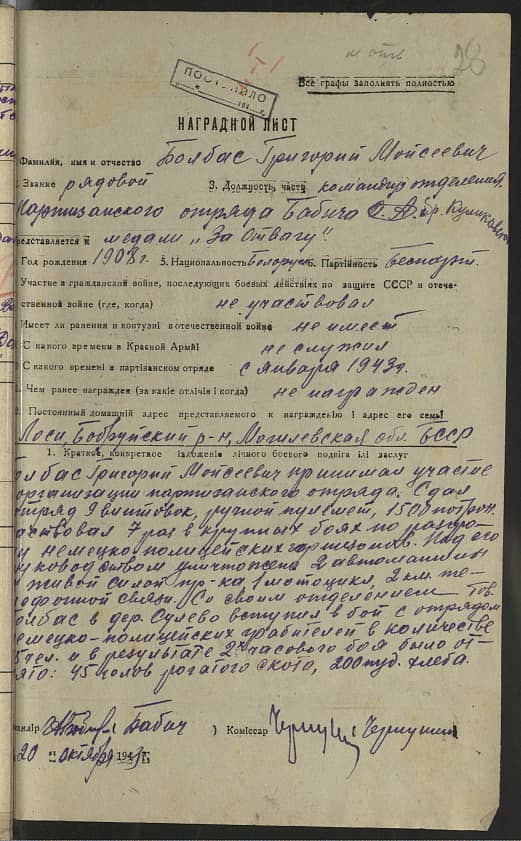 28
ПОСТУПИЛО
Все графы заполнять полностью
НАГРАДНОЙ ЛИСТ
Фамилия, имя и отчество Болбас Григорий Мойсеевич
Звание рядовой 3. Должность, часть командир отделения
Партизанского отряда Бабича бр. Куликовского
редставляется к медали „За Отвагу“.
Год рождения 1908 г. 5. Национальность Белорус 6. Партийность Беспарт.
Участие в гражданской войне, последующих боевых действиях по защите СССР и отече-
ственной войне (где, когда) не участвовал
Имеет ли ранения и контузии в отечественной войне не имеет
С какого времени в Красной Армии не служил
С какого времени в партизанском отряде с января 1943 г.
Чем ранее награжден (за какие отличия и когда) не награжден
Постоянный домашний адрес представляемого к награждению и адрес его семьи
Лоси, Бобруйский р-н, Могилевская обл. БССР
1. Краткое, конкретное изложение личного боевого подвига или заслуг
олбас Григорий Мойсеевич принимал участие
организации партизанского отряда. Сдал
отряд 9 винтовок, ручной пулемет, 1500 патрон.
аствовал 7 раз в крупных боях по разгро-
у немецко-полицейских гарнизонов. Под его
уководством уничтожена 2 автомашин
живой силой пр-ка, 1 мотоцикл, 2 км. те-
ефонной связи. Со своим отделением тов.
олбас в дер. Сулево вступил в бой с отрядом
емецко-полицейских грабителей в количестве
чел. и в результате 2х часового боя было от-
ято: 45 голов рогатого скота, 200 пуд. хлеба.
мандир Бабич ) Комиссар
20 " октября 194